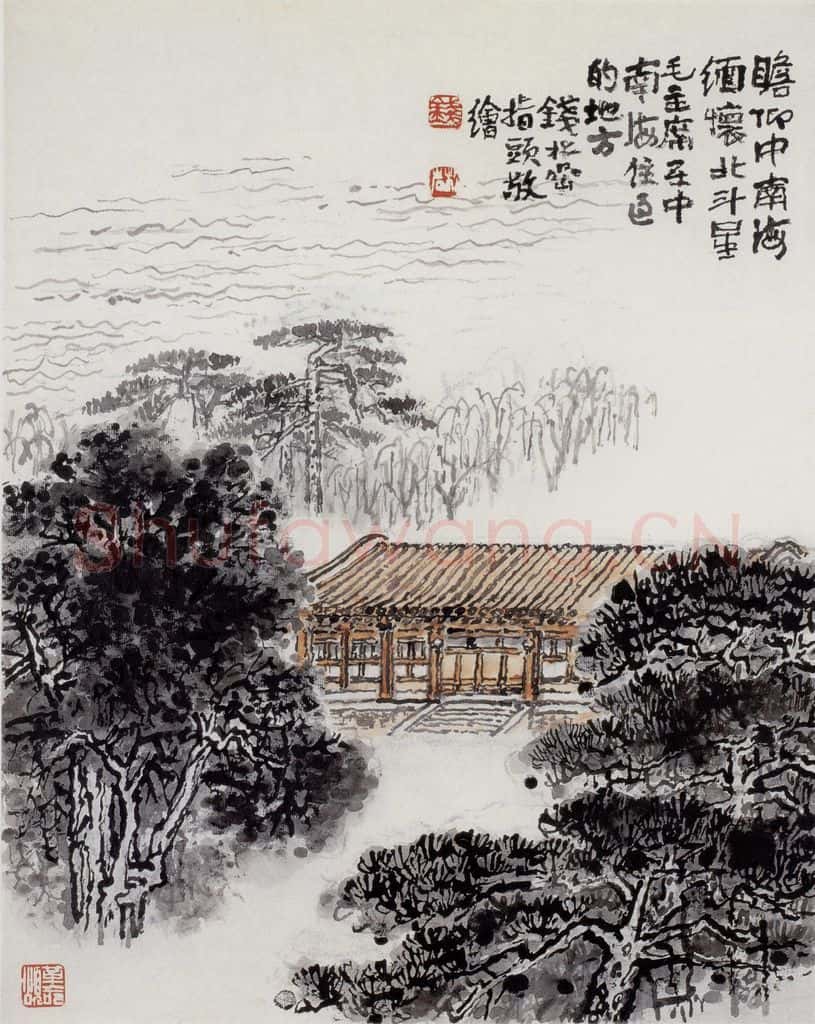 瞻仰中南海
缅懷北斗星
毛主席在中
南海住过
的地方
錢松喦
指頭敬
繪
錢
Shufawang.CN